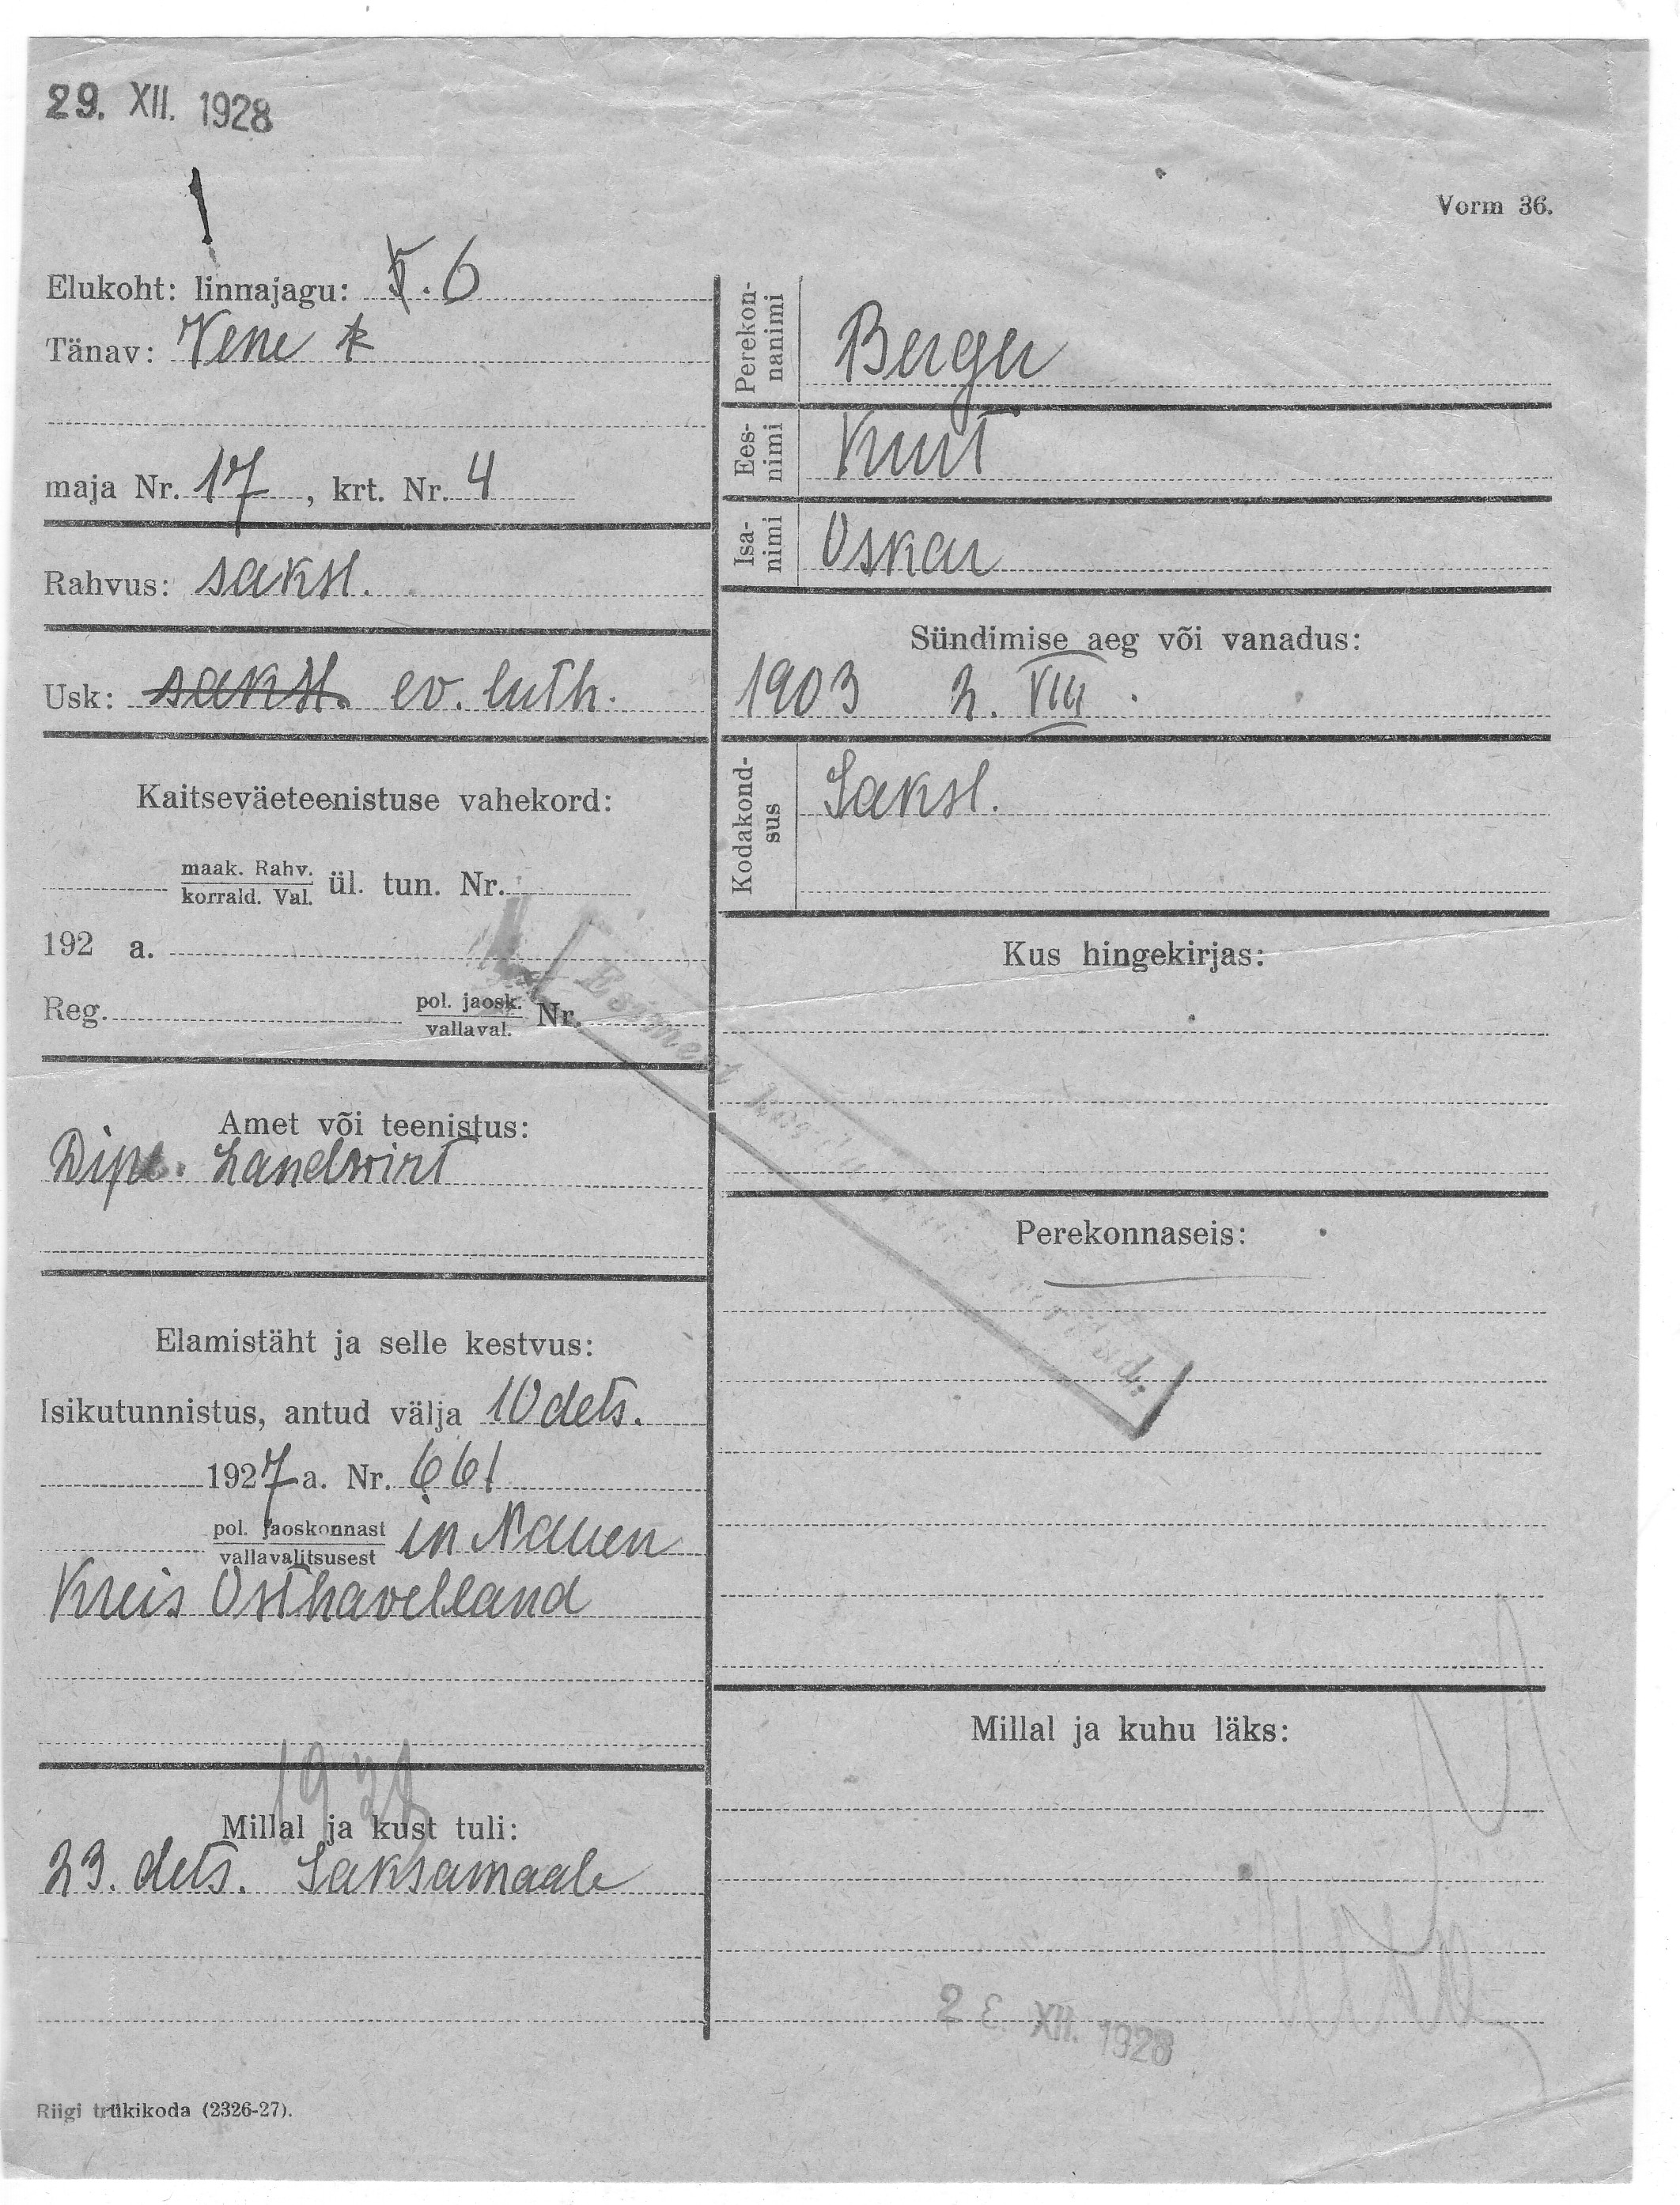 29. XII. 1928
Vorm 36.
Elukoht: linnajagu: 6
Tänav: Vene
maja Nr. 17, krt. Nr. 4
Rahvus: saksl.
Usk: saksl. ev. luth.
Kaitseväeteenistuse vahekord:
maak. Rahv.
korrald. Val. ül. tun. Nr.
192 a.
Reg. pol. jaosk. Nr.
vallaval.
Amet või teenistus:
Dipl. Landwirt
Elamistäht ja selle kestvus:
Isikutunnistus, antud välja 10 dets.
1927 a. Nr. 661
pol. jaoskonnast in Nauen
vallavalitsusest
Kreis Osthavelland
1928
Millal ja kust tuli:
23. dets. Saksamaale
Riigi trükikoda (2326-27).
Perekonnanimi Berger
Eesnimi Kurt
Isanimi Oskar
Sündimise aeg või vanadus:
1903 2. VIII.
Kodakondsus Saksl.
Kus hingekirjas:
Esimene
Perekonnaseis:
Millal ja kuhu läks:
XII. 1928